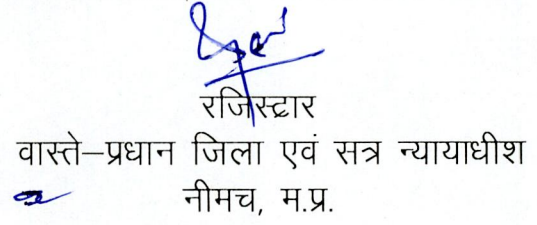 रजिस्ट्रार
वास्ते–प्रधान जिला एवं सत्र न्यायाधीश
नीमच, म.प्र.